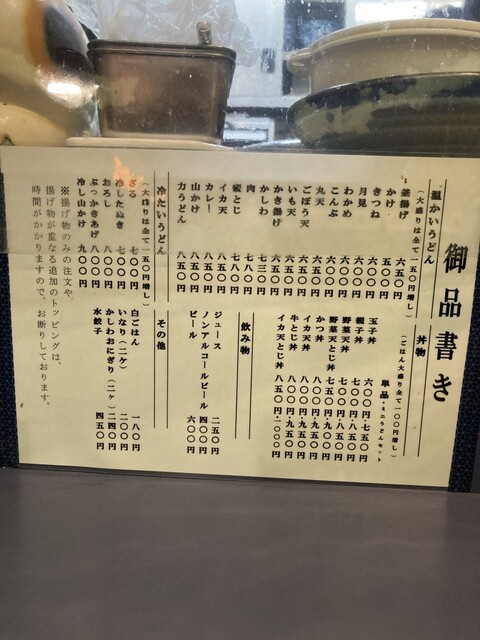 御品書き
温かいうどん
(大盛りは全て一五〇円増し)
釜揚げ 六五〇円
かけ 五〇〇円
きつね 六〇〇円
月見 六〇〇円
わかめ 六〇〇円
こんぶ 六〇〇円
丸天 六五〇円
ごぼう天 六五〇円
いも天 六五〇円
かき揚げ 六五〇円
かしわ 七三〇円
肉 八〇〇円
とじ 七八〇円
イカ天 八五〇円
カレー 八五〇円
山かけ 八五〇円
力うどん 八五〇円
冷たいうどん
(大盛りは全て一五〇円増し)
ざる 七〇〇円
冷したぬき 七〇〇円
おろし 八〇〇円
ぶっかきあげ 八〇〇円
冷し山かけ 九〇〇円
※揚げ物のみの注文や、
揚げ物が重なる追加のトッピングは、
時間がかかりますので、お断りしております。
丼物
(ごはん大盛り全て一〇〇円増し)
単品・ミニうどんセット
玉子丼 六〇〇円・七五〇円
親子丼 七〇〇円・八五〇円
野菜天丼 七〇〇円・八五〇円
野菜天とじ丼 七五〇円・九〇〇円
かつ丼 八〇〇円・九五〇円
イカ天丼 八〇〇円・九五〇円
牛とじ丼 八〇〇円・九五〇円
イカ天とじ丼 八五〇円・一〇〇〇円
飲み物
ジュース 二五〇円
ノンアルコールビール 四〇〇円
ビール 六〇〇円
その他
白ごはん 一八〇円
いなり(二ケ) 二〇〇円
かしわおにぎり(二ヶ) 二四〇円
水餃子 四五〇円